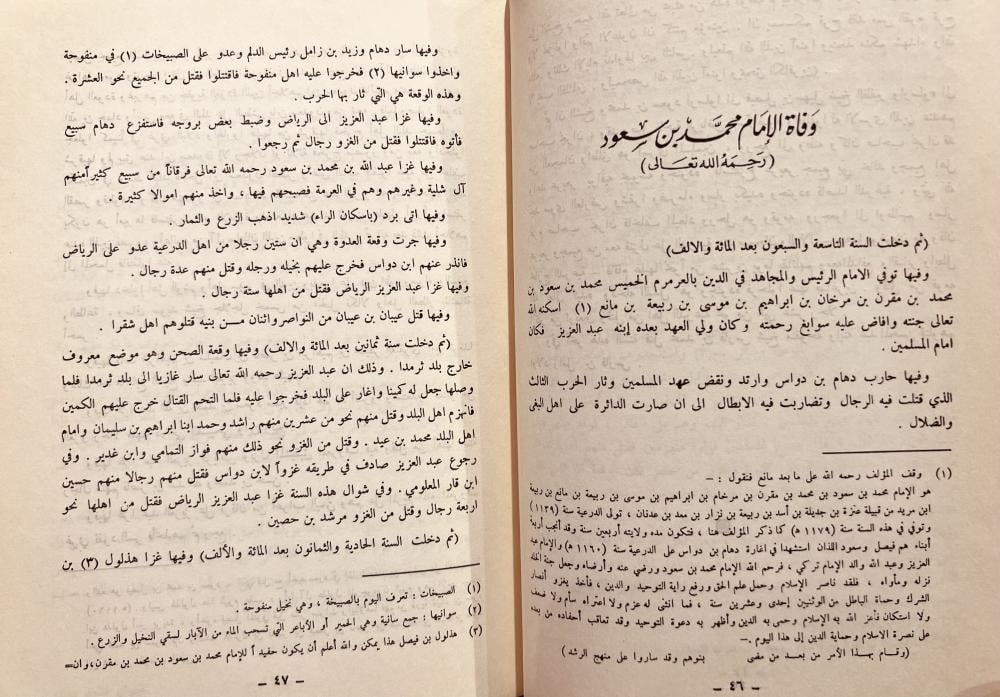 وفاة الإمام محمد بن سعود
(رحمه الله تعالى)
(ثم دخلت السنة التاسعة والسبعون بعد المائة والالف)
وفيها توفي الامام الرئيس والمجاهد في الدين بالعرمرم الخميس محمد بن سعود بن
محمد بن مقرن بن مرخان بن ابراهيم بن موسى بن ربيعة بن مانع (١) اسكنه الله
تعالى جنته وافاض عليه سوابغ رحمته وكان ولي العهد بعده إبنه عبد العزيز فكان
امام المسلمين .
وفيها حارب دهام بن دواس وارتد ونقض عهد المسلمين وثار الحرب الثالث
الذي قتلت فيه الرجال وتضاربت فيه الابطال الى ان صارت الدائرة على اهل البغى
والضلال .
(١) وقف المؤلف رحمه الله على ما بعد مانع فنقول : –
هو الإمام محمد بن سعود بن محمد بن مقرن بن مرخام بن ابراهيم بن موسى بن ربيعة بن مانع بن ربيعة
ابن مريد من قبيلة عنزة بن جديلة بن أسد بن ربيعة بن نزار بن معد بن عدنان ، تولى الدرعية سنة (١١٣٩)
وتوفي في هذه السنة سنة (١١٧٩ ه) كما ذكر المؤلف هنا ، فتكون مده ولايته أربعين سنة وقد أنجب أربعة
أبناء هم فيصل وسعود اللذان استشهدا في اغارة دهام بن دواس على الدرعية سنة (١١٦٠ ه) والإمام عبد
العزيز وعبد الله والد الإمام تركي ، فرحم الله الإمام محمد بن سعود ورضي عنه وأرضاه وجعل جنة الخلد
نزله ومأواه ، فلقد ناصر الإسلام وحمل علم الحق ورفع راية التوحيد والدين ، فأخذ يغزو أنصار
الشرك وحماة الباطل من الوثنيين إحدى وعشرين سنة ، فما انثنى له عزم ولا اعتراه سأم ولا ضعف
ولا استكان فأعز الله به الإسلام وحمى به الدين وأظهر به دعوة التوحيد وقد تعاقب أحفاده من بعده
على نصرة الاسلام وحماية الدين إلى هذا اليوم .–
(وقام بهذا الأمر من بعد من مضى بنوهم وقد ساروا على منهج الرشد )
– ٤٦ –
وفيها سار دهام وزيد بن زامل رئيس الدلم وعدو على الصبيخات (١) في منفوحة
واخذوا سوانيها (٢) فخرجوا عليه اهل منفوحة فاقتتلوا فقتل من الجميع نحو العشرة .
وهذه الوقعة هي التي ثار بها الحرب .
وفيها غزا عبد العزيز الى الرياض وضبط بعض بروجه فاستفزع دهام سبيع
فأتوه فاقتتلوا فقتل من الغزو رجال ثم رجعوا .
وفيها غزا عبد الله بن محمد بن سعود رحمه الله تعالى فرقاناً من سبيع كثير أمنهم
آل شلية وغيرهم وهم في العرمة فصبحهم فيها ، واخذ منهم اموالا كثيرة .
وفيها اتى برد (باسكان الراء) شديد اذهب الزرع والثمار .
وفيها جرت وقعة العدوة وهي ان ستين رجلا من اهل الدرعية عدو على الرياض
فانذر عنهم ابن دواس فخرج عليهم بخيله ورجله وقتل منهم عدة رجال .
وفيها غزا عبد العزيز الرياض فقتل من اهلها ستة رجال .
وفيها قتل عيبان بن عيبان من النواصر واثنان مــن بنيه قتلوهم اهل شقرا .
(ثم دخلت سنة ثمانين بعد المائة والالف) وفيها وقعة الصحن وهو موضع معروف
خارج بلد ثرمدا . وذلك ان عبد العزيز رحمه الله تعالى سار غازيا الى بلد ثرمدا فلما
وصلها جعل له كمينا واغار على البلد فخرجوا عليه فلما التحم القتال خرج عليهم الكمين
فانهزم اهل البلد وقتل منهم نحو من عشرين منهم راشد وحمد ابنا ابراهيم بن سليمان وامام
اهل البلد محمد بن عيد . وقتل من الغزو نحو ذلك منهم فواز التمامي وابن غدير . وفي
رجوع عبد العزيز صادف في طريقه غزواً لابن دواس فقتل منهم رجالا منهم حسين
ابن قار المعلومي . وفي شوال هذه السنة غزا عبد العزيز الرياض فقتل من اهلها نحو
اربعة رجال وقتل من الغزو مرشد بن حصين .
(ثم دخلت السنة الحادية والثمانون بعد المائة والألف) وفيها غزا هذلول (٣) بن
(١) الصبيخات : تعرف اليوم بالصبيخة ، وهي نخيل منفوحة .
(٢) سوانيها : جمع سانية وهي الحمير أو الأباعر التي تسحب الماء من الآبار لسقي النخيل والزرع .
(٣) هذلول بن فيصل هذا يمكن والله أعلم أن يكون حفيد أ للإمام محمد بن سعود بن محمد بن مقرن، وان=
– ٤٧ –